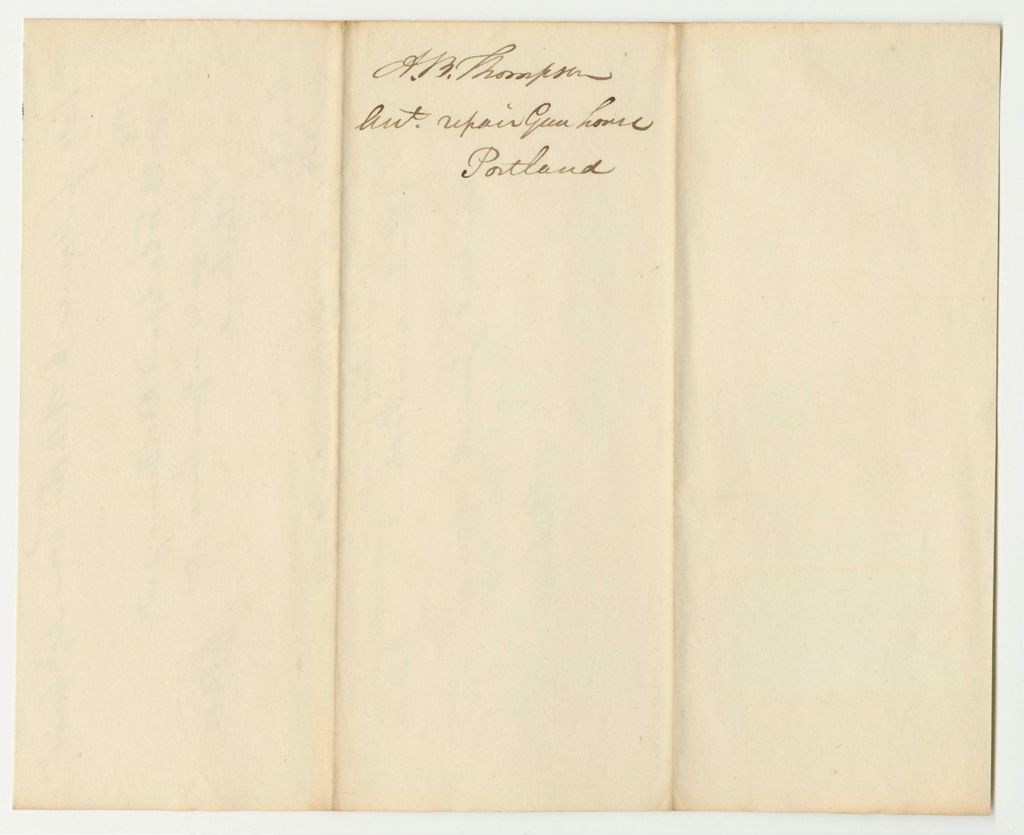 A. B. Thompson
Aut. repair Gun house
Portland